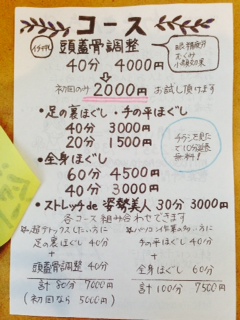 コース
イチオシ 頭蓋骨調整
40分 4000円
眼精疲労
むくみ
小顔効果
初回のみ 2000円 お試し頂けます
・足の裏ほぐし・手の平ほぐし
40分 3000円
20分 1500円
チラシを見たで
10分延長
無料!
・全身ほぐし
60分 4500円
40分 3000円
・ストレッチde姿勢美人 30分 3000円
各コース組み合わせできます
超デトックスしたい方に
足の裏ほぐし 40分
+
頭蓋骨調整 40分
計 80分 7000円
(初回なら 5000円)
パソコン作業の多い方に
手の平ほぐし 40分
+
全身ほぐし 60分
計 100分 7500円